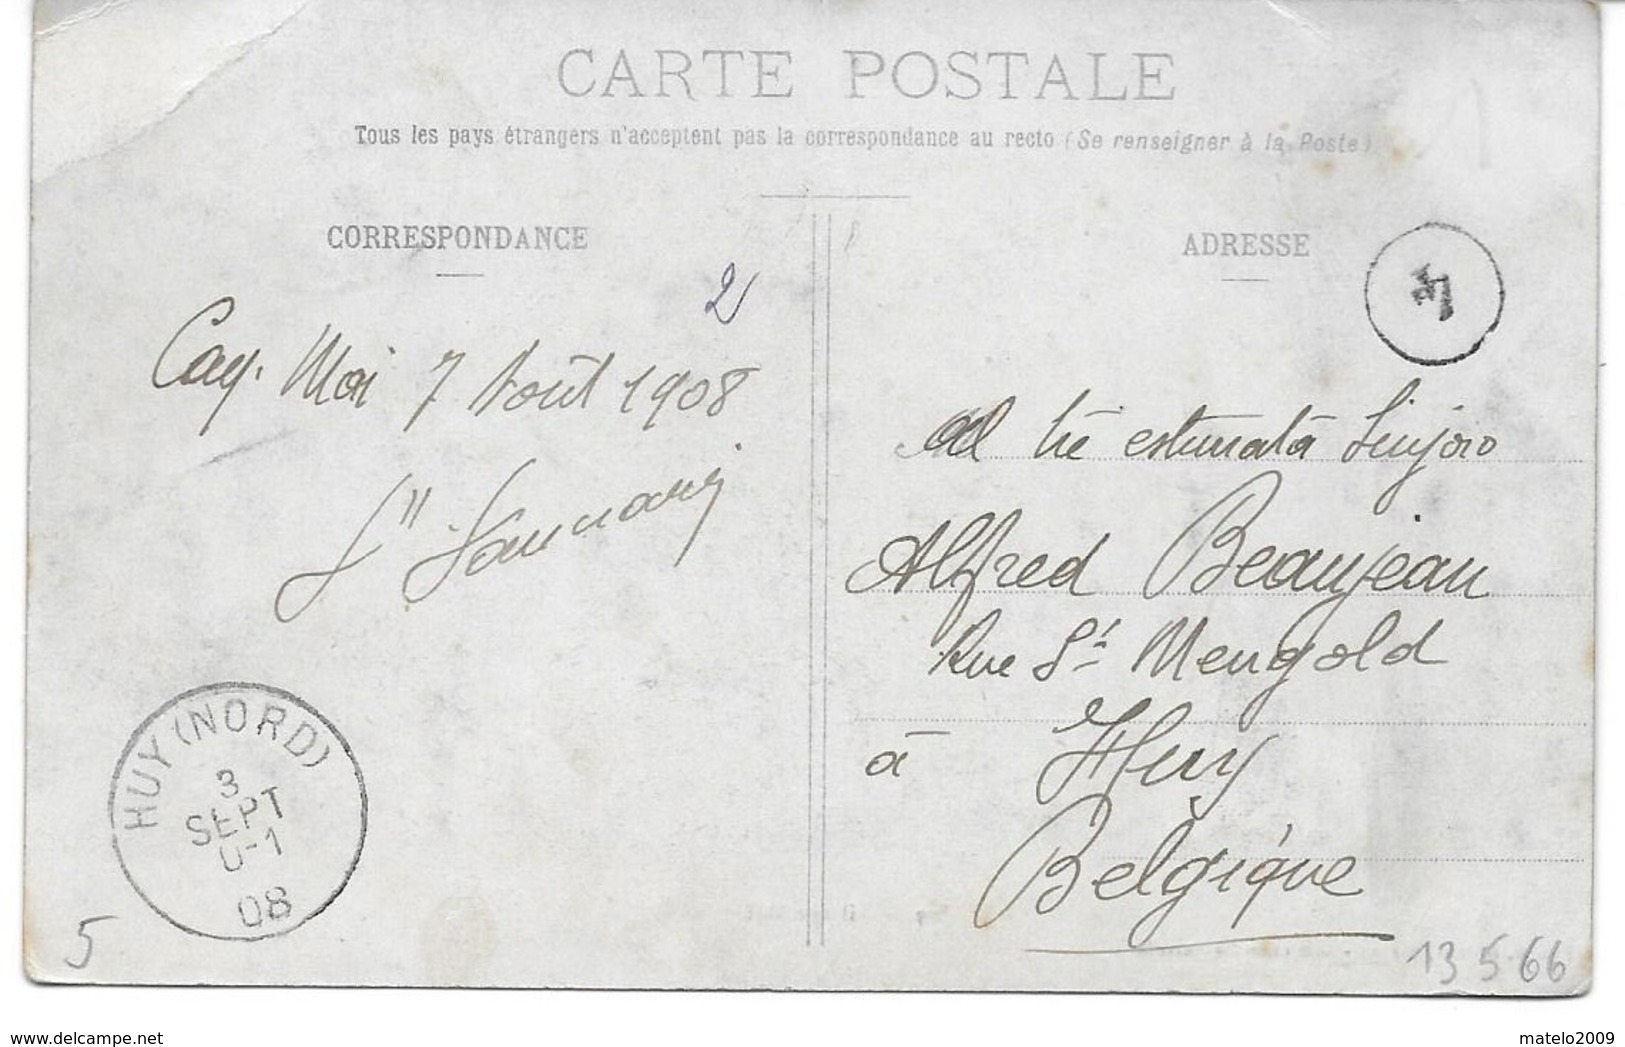 CARTE POSTALE
Tous les pays étrangers n'acceptent pas la correspondance au recto (Se renseigner à la Poste)
CORRESPONDANCE
2
Cay. Mai 7 Août 1908
HUY (NORD)
3
SEPT
08
5
ADRESSE
Al tre estimata Sinjoro
Alfred Beaujean
Rue St Mengold
à Huy
Belgique
13 5 66
www.delcampe.net
matelo2009